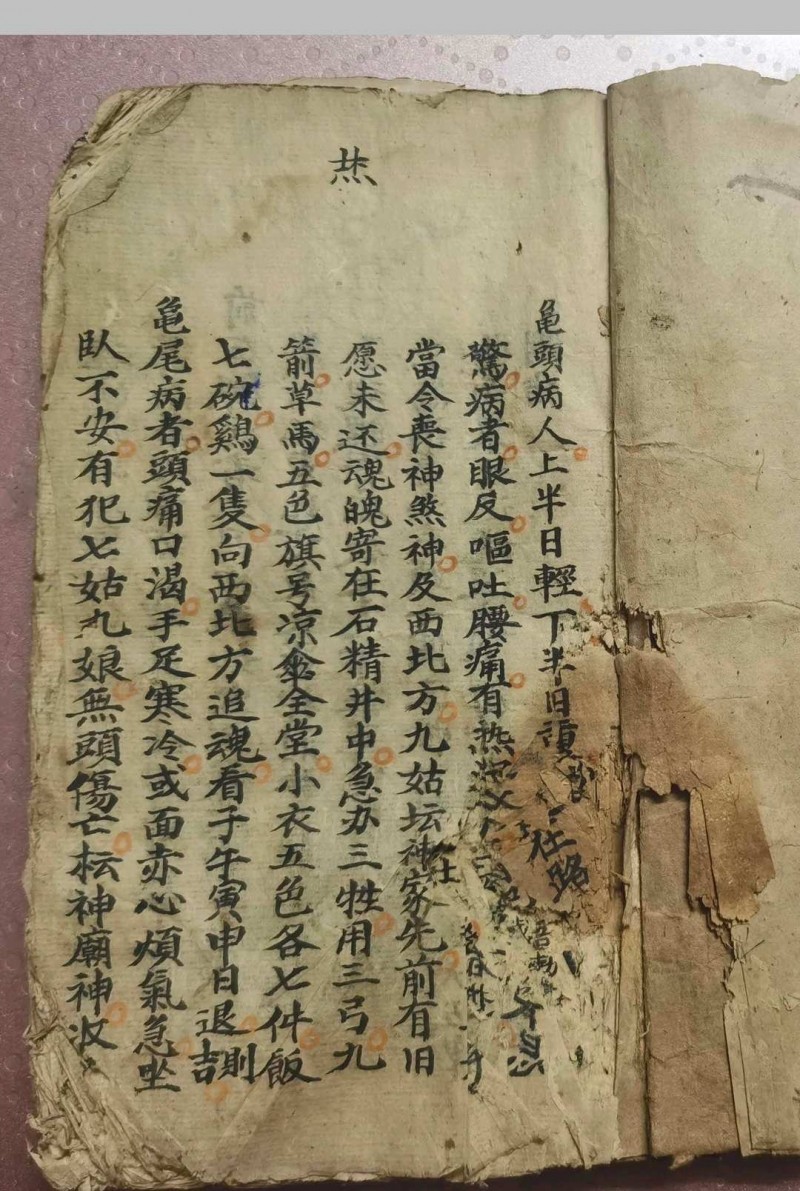 𤇆
龟頭病人上半日輕下半日重
驚病者眼反嘔吐腰痛有热
當令喪神煞神及西北方九姑坛神家先前有旧
愿未还魂魄寄在石精井中急办三牲用三弓九
箭草馬五色旗号凉傘全堂小衣五色各七件飯
七碗鷄一隻向西北方追魂看子午寅申日退則吉
龟尾病者頭痛口渴手足寒冷或面赤心煩氣急坐
臥不安有犯七姑九娘無頭傷亡坛神廟神收